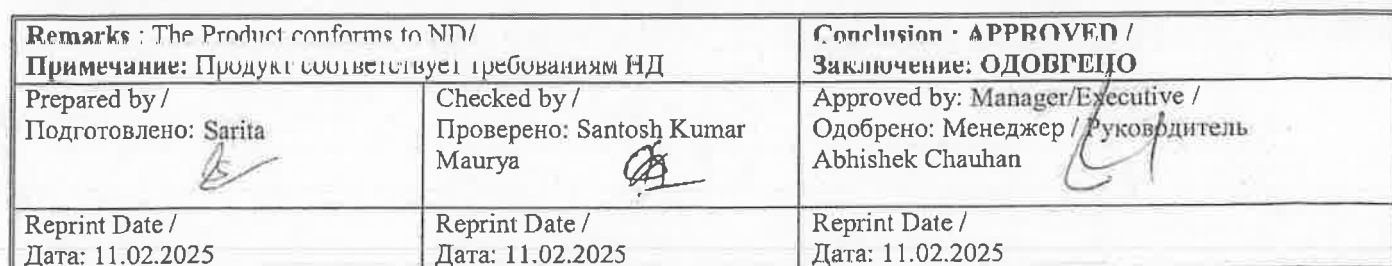 Remarks : The Product conforms to ND/
Примечание: Продукт соответствует требованиям НД
Conclusion : APPROVED /
Заключение: ОДОБРЕНО
Prepared by /
Подготовлено: Sarita
Checked by /
Проверено: Santosh Kumar
Maurya
Approved by: Manager/Executive /
Одобрено: Менеджер / Руководитель
Abhishek Chauhan
Reprint Date /
Дата: 11.02.2025
Reprint Date /
Дата: 11.02.2025
Reprint Date /
Дата: 11.02.2025